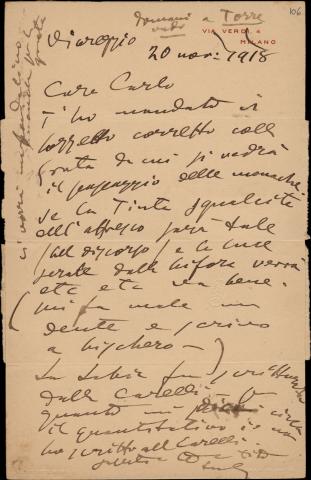 106
domani
vado a Torre
VIA VERDI, 4
MILANO
Viareggio
20 nov. 1918
Caro Carlo
T'ho mandato il
bozzetto corretto colla
grata da cui si vedrà
il passaggio delle monache
Se la Tinta squallida
dell'affresco sarà tale
(nel discorso) e la luce
serale dalla bifora verrà
etc etc va bene.
(mi fa male un
dente e scrivo
a bischero)
La Labia fu scritturata
dalla Carelli
quanto mi circa
il quantitativo io non
ho scritto alla Carelli.